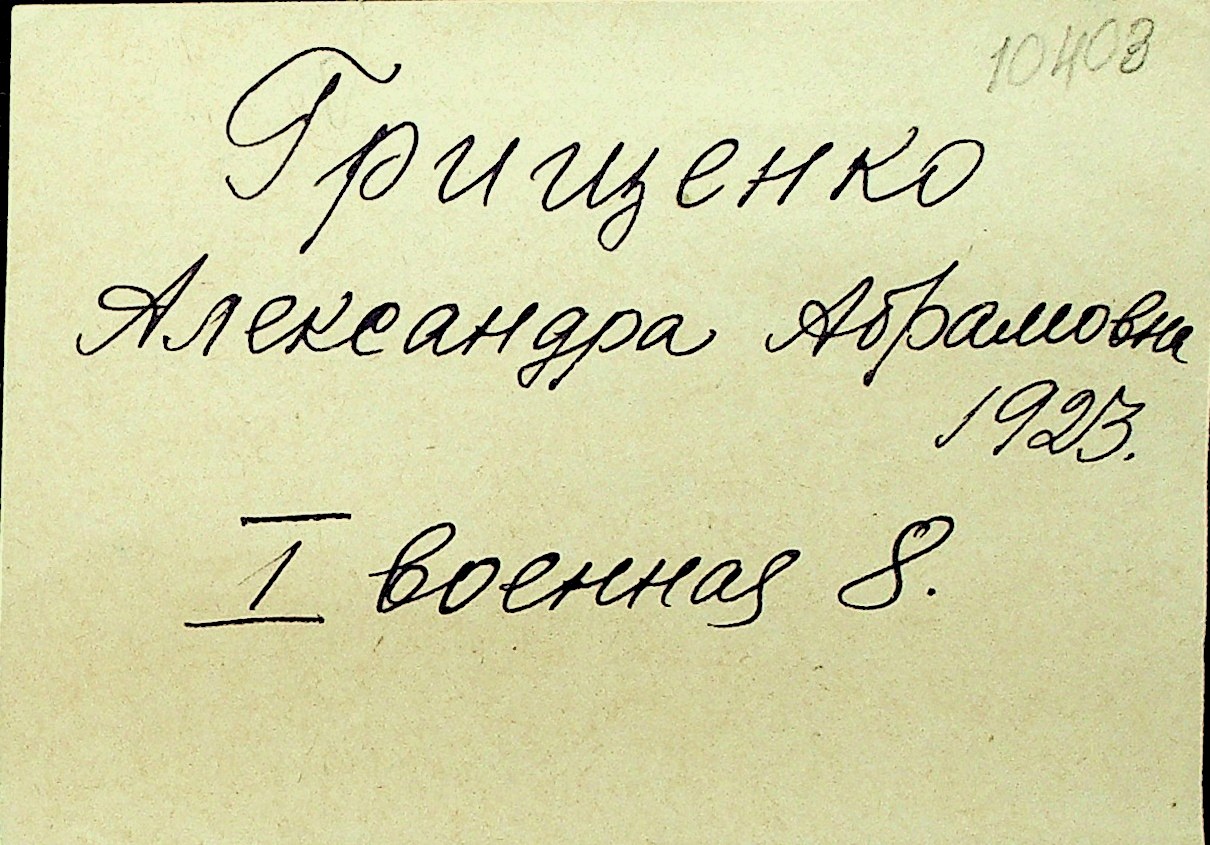 10403
Грищенко
Александра Абрамовна
1923.
I военная 8.